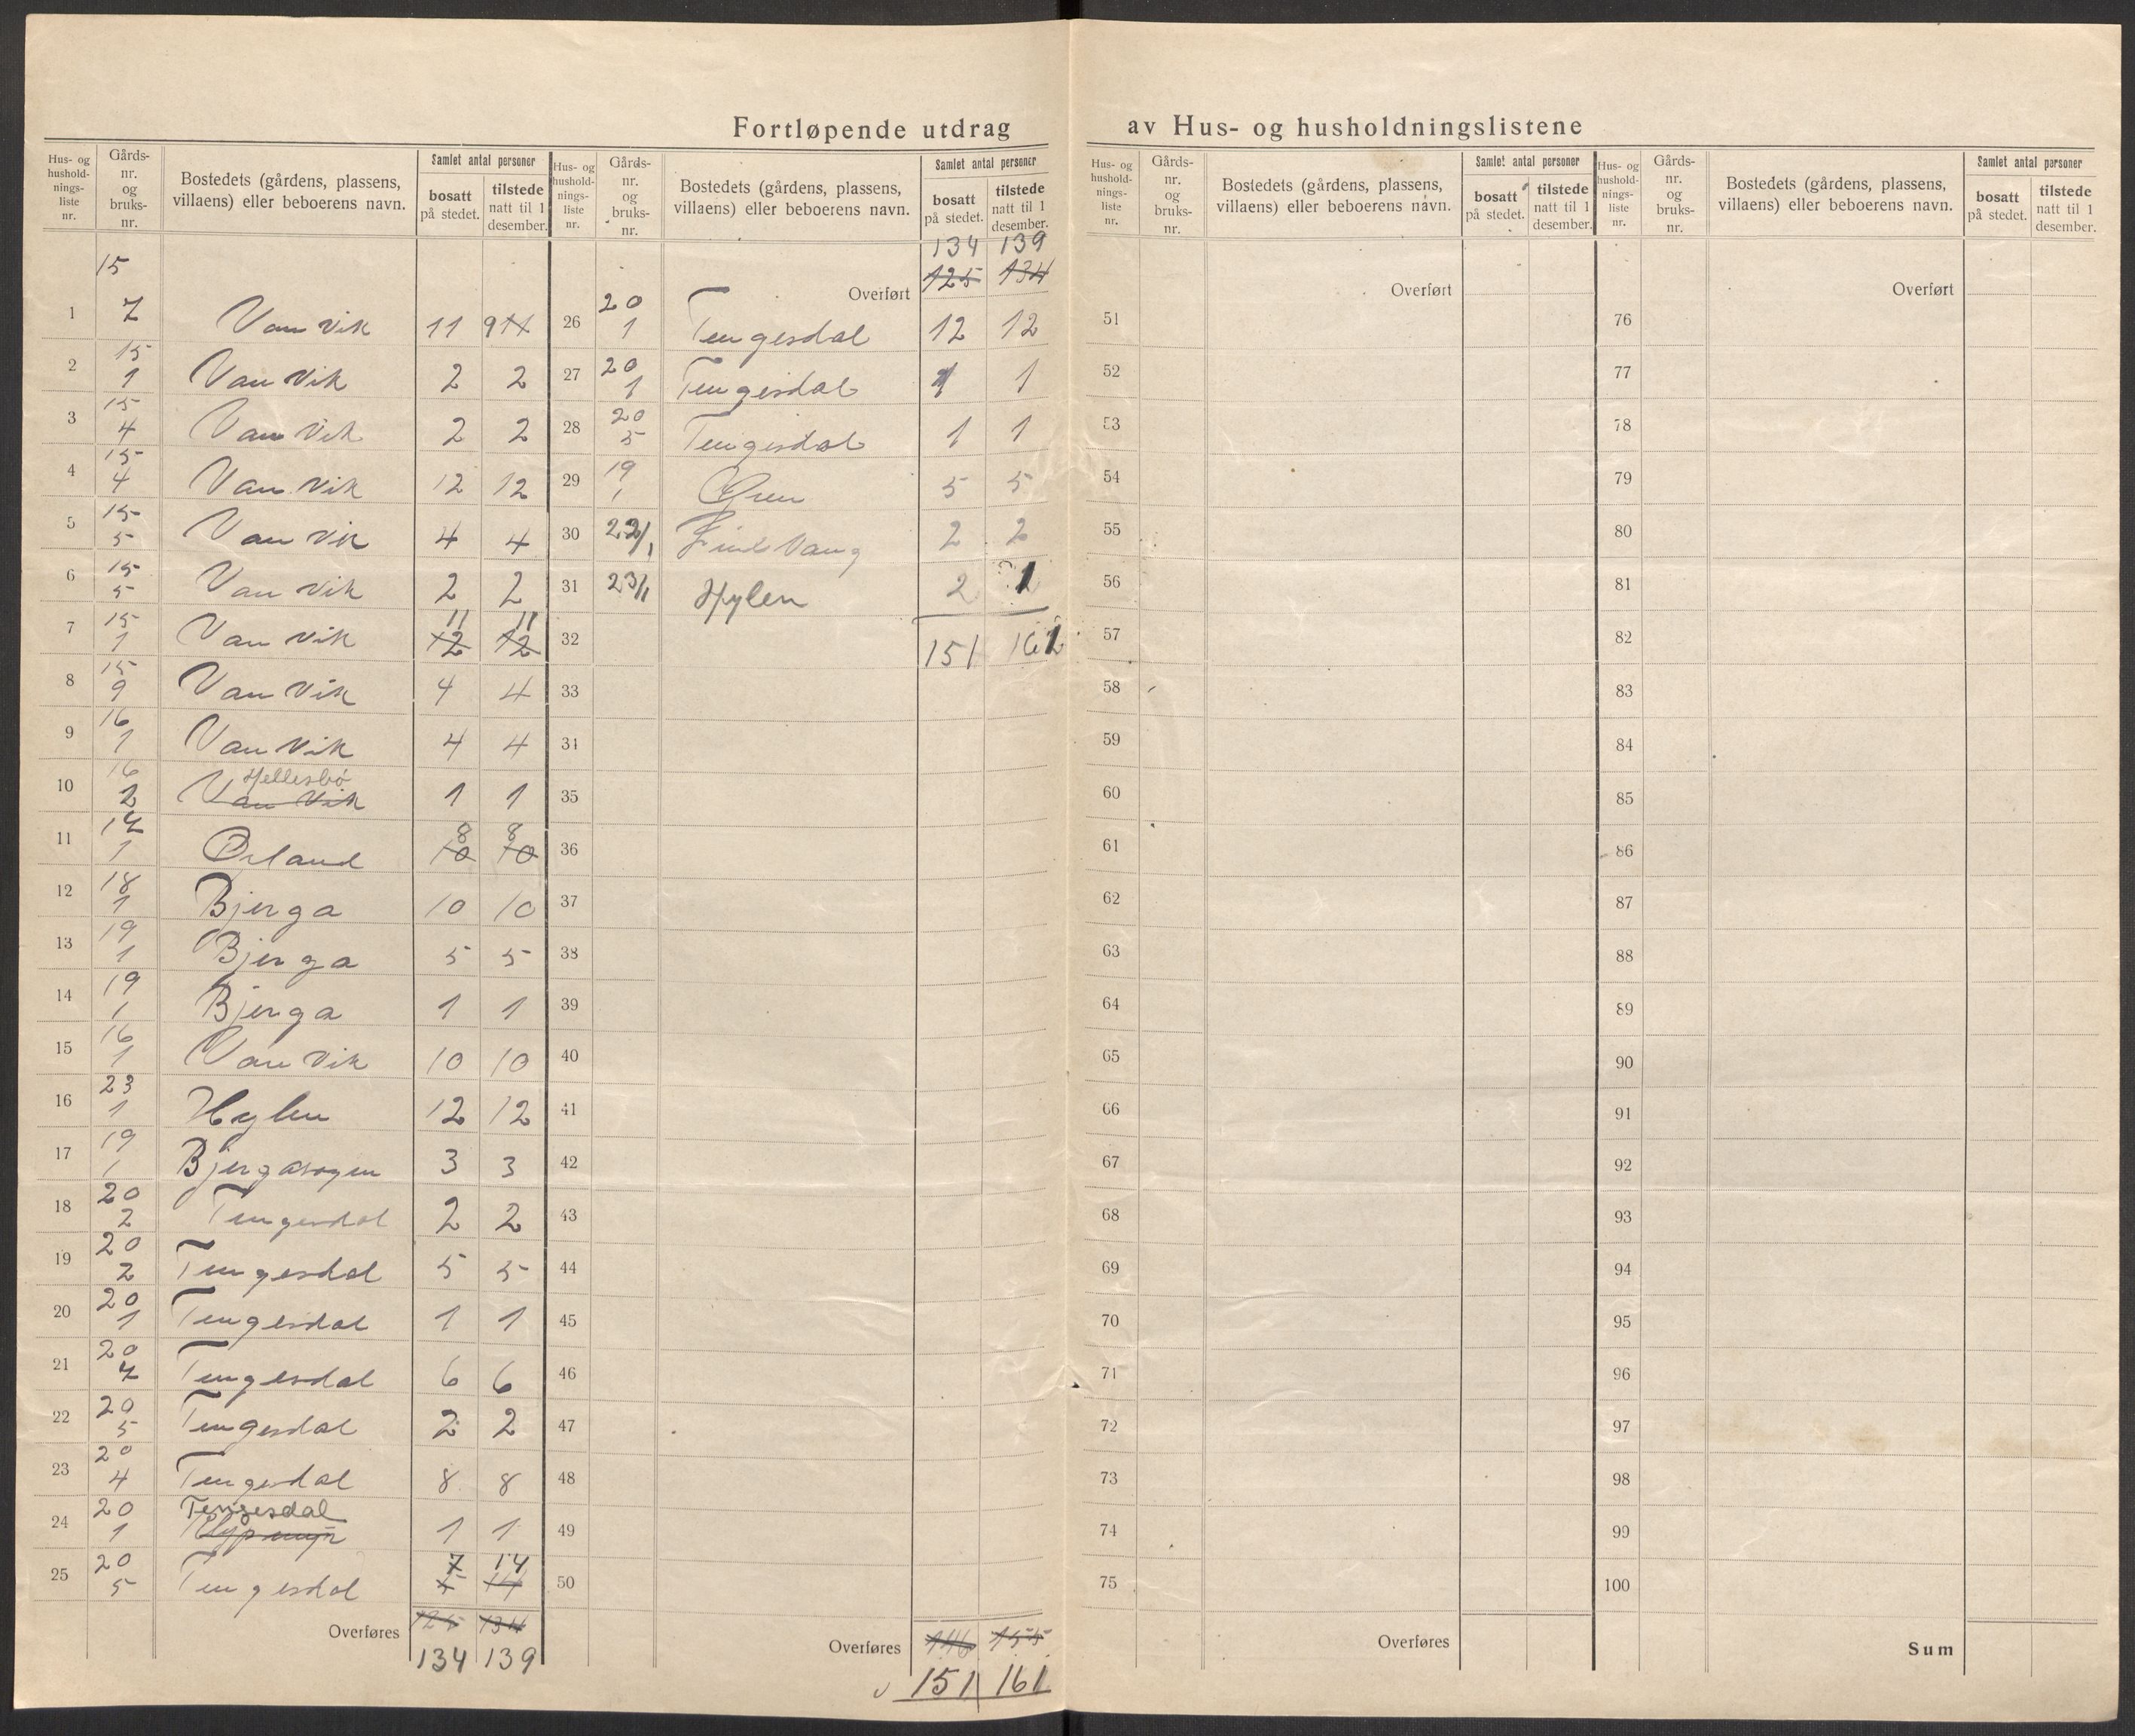 Fortløpende utdrag av Hus- og husholdningslistene
Hus- og hushold-nings-liste nr. Gårds-nr. og bruks-nr. Bostedets (gårdens, plassens, villaens) eller beboerens navn. Samlet antal personer bosatt på stedet. tilstede natt til 1 desember.
15
1 7 Vanvik 11 9 11
2 15 1 Vanvik 2 2
3 15 4 Vanvik 2 2
4 15 4 Vanvik 12 12
5 15 5 Vanvik 4 4
6 15 5 Vanvik 2 2
7 15 1 Vanvik 11 12 11 12
8 15 9 Vanvik 4 4
9 16 1 Vanvik 4 4
10 16 2 Hellesbø Vanvik 1 1
11 17 1 Ørland 8 10 8 10
12 18 1 Bjerga 10 10
13 19 1 Bjerga 5 5
14 19 1 Bjerga 1 1
15 16 1 Vanvik 10 10
16 23 1 Hylen 12 12
17 19 1 3 3
18 20 2 Tengesdal 2 2
19 20 2 Tengesdal 5 5
20 20 1 Tengesdal 1 1
21 20 7 Tengesdal 6 6
22 20 5 Tengesdal 2 2
23 20 4 Tengesdal 8 8
24 20 1 Tengesdal 1 1
25 20 5 Tengesdal 7 14
Overføres 125 134
134 139
Hus- og hushold-nings-liste nr. Gårds-nr. og bruks-nr. Bostedets (gårdens, plassens, villaens) eller beboerens navn. Samlet antal personer bosatt på stedet. tilstede natt til 1 desember.
134 139
Overført 125 134
26 20 1 Tengesdal 12 12
27 20 1 Tengesdal 1 1
28 20 5 Tengesdal 1 1
29 19 1 5 5
30 22/1 2 2
31 23/1 Hylen 2 1
32 151 161
33
34
35
36
37
38
39
40
41
42
43
44
45
46
47
48
49
50
Overføres 146 155
151 161
Hus- og hushold-nings-liste nr. Gårds-nr. og bruks-nr. Bostedets (gårdens, plassens, villaens) eller beboerens navn. Samlet antal personer bosatt på stedet. tilstede natt til 1 desember.
Overført
51
52
53
54
55
56
57
58
59
60
61
62
63
64
65
66
67
68
69
70
71
72
73
74
75
Overføres
Hus- og hushold-nings-liste nr. Gårds-nr. og bruks-nr. Bostedets (gårdens, plassens, villaens) eller beboerens navn. Samlet antal personer bosatt på stedet. tilstede natt til 1 desember.
Overført
76
77
78
79
80
81
82
83
84
85
86
87
88
89
90
91
92
93
94
95
96
97
98
99
100
Sum